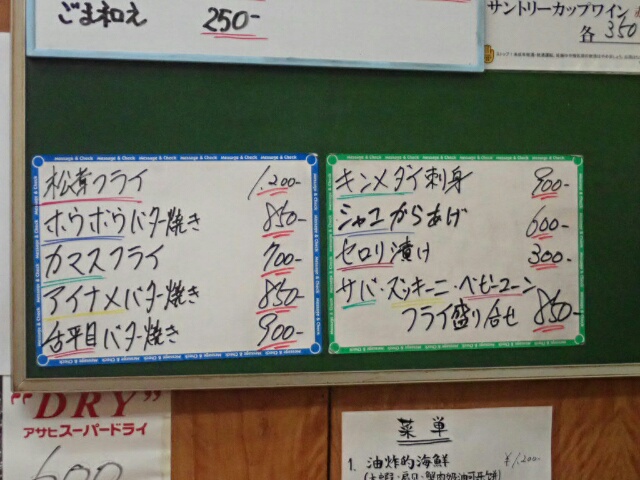 ごま和え 250-
サントリーカップワイン
各 350
松茸フライ 1,200-
ホウボウバター焼き 850-
カマスフライ 700-
アイナメバター焼き 850-
舌平目バター焼き 900-
キンメダイ刺身 900-
シャコからあげ 600-
セロリ漬け 300-
サバ・ズッキーニ・ベビーコーン
フライ盛り合せ 850-
"DRY"
アサヒスーパードライ
600
菜単
1. 油炸的海鮮 ¥1,200-